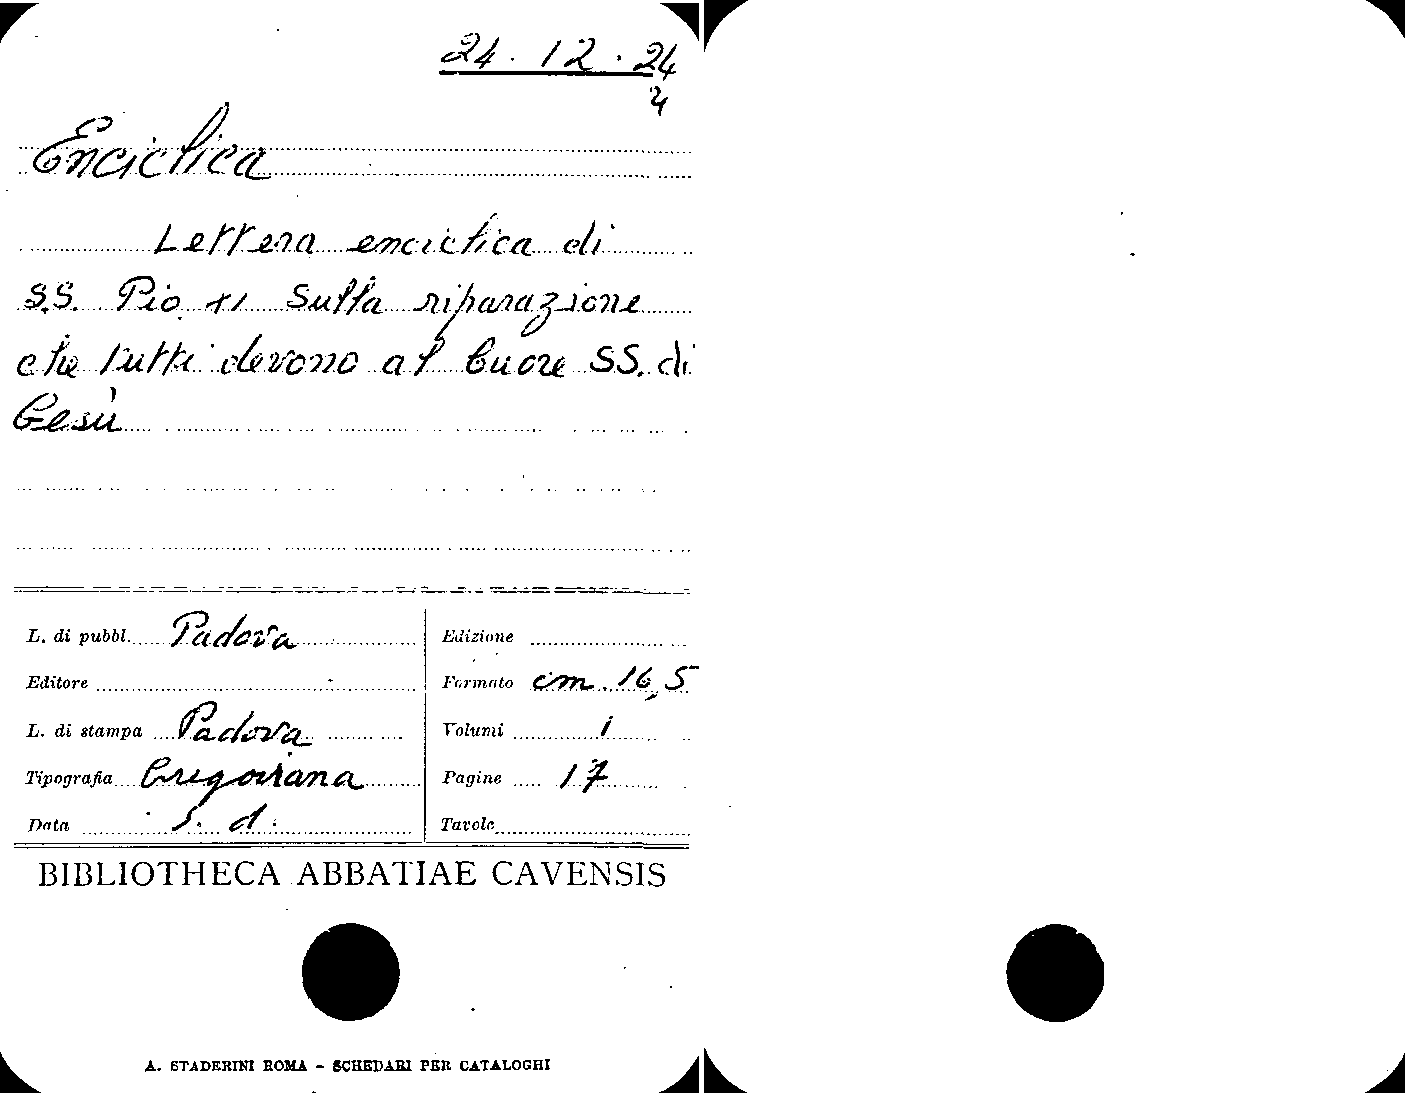 24 . 12 . 24
24
Enciclica
Lettera enciclica di
S.S. Pio XI sulla riparazione
che tutti devono al Cuore SS. di
Gesù
L. di pubbl. Padova
Editore
L. di stampa Padova
Tipografia Gregoriana
Data s. d.
Edizione
Formato cm. 16,5
Volumi 1
Pagine 17
Tavole
BIBLIOTHECA ABBATIAE CAVENSIS
A. STADERINI ROMA - SCHEDARI PER CATALOGHI